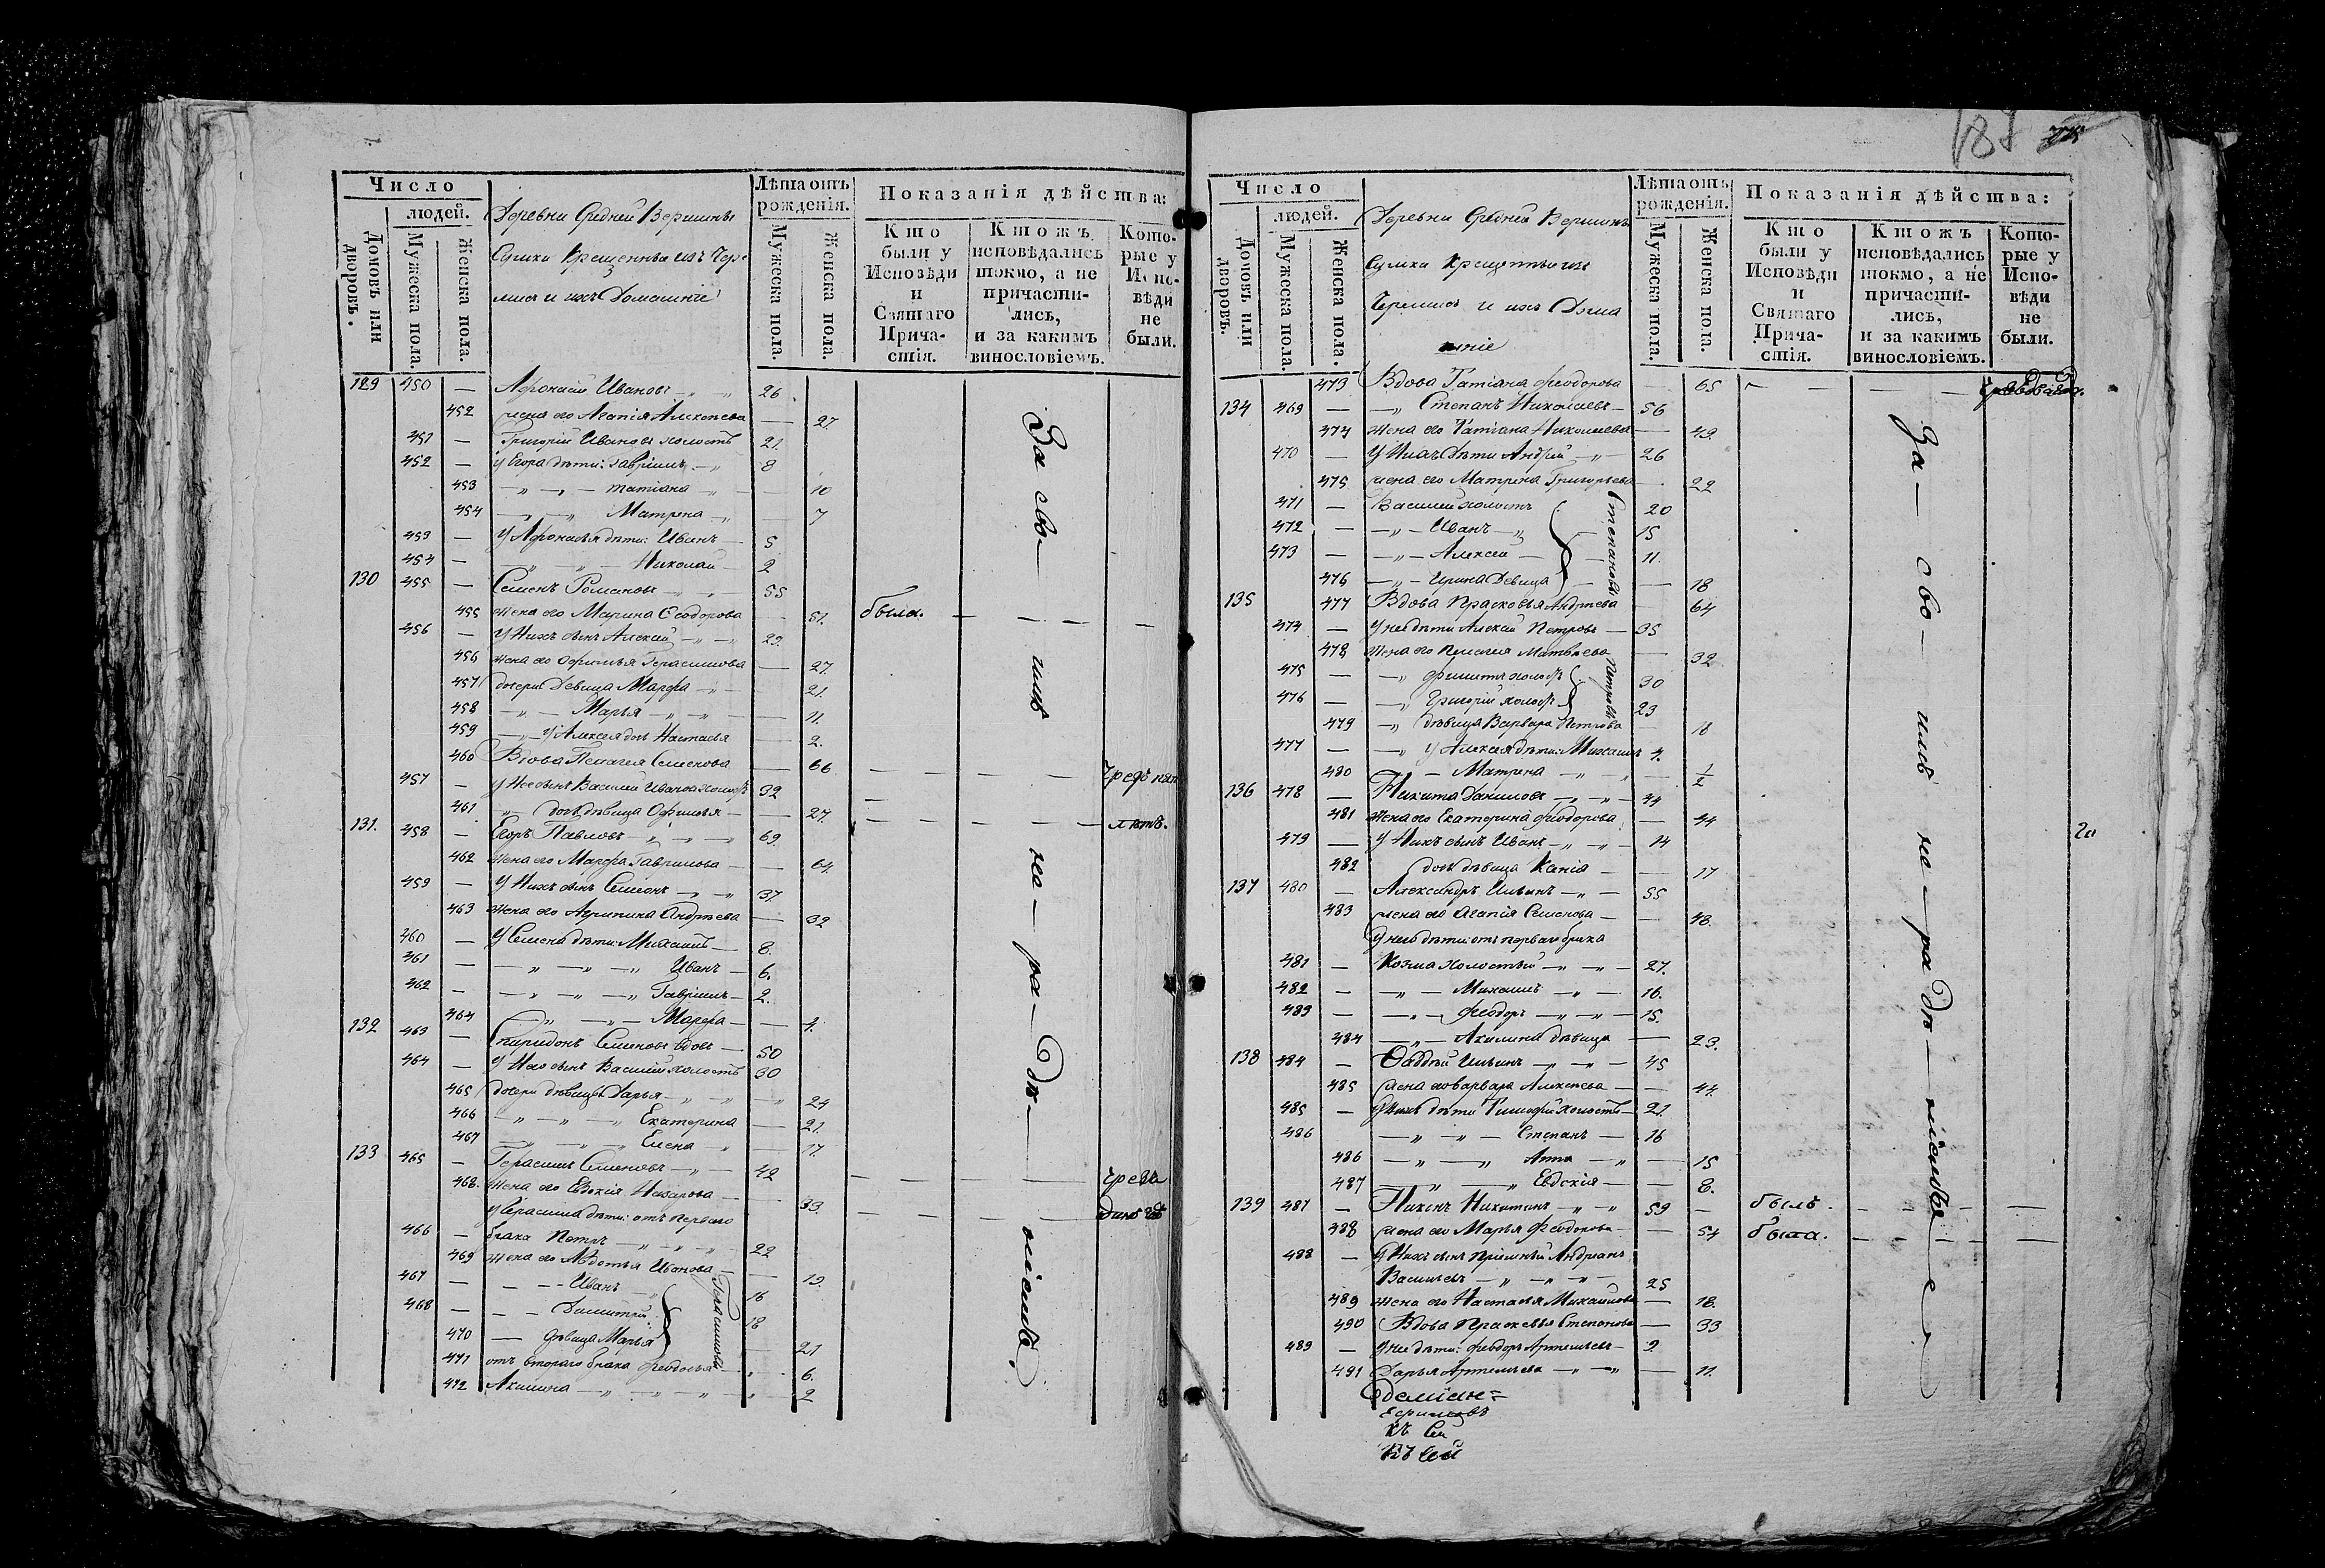 Число
людей.
Домовъ или дворовъ.
Мужеска пола.
Женска пола.
Деревни Средней Вершины
Сумки Крещенныя изъ Чере
мисъ и ихъ Домашніе
Лѣта отъ рожденія.
Мужеска пола.
Женска пола.
Показанія дѣйства:
Кто были у Исповѣди и Святаго Причастія.
Ктожъ исповѣдались токмо, а не причастились, и за какимъ винословіемъ.
Которые у Исповѣди не были.
129 450 — Афонасій Ивановъ 26
452 жена его Агапія Алексеева — 27
451 — Григорій Ивановъ холостъ 21.
452 — у Егора дѣти: Гавріилъ 8
453 Татіана — 10
454 Матрена — 7
453 — У Афонасья дѣти: Иванъ 5
454 — Николай 2
130 455 — Семенъ Романовъ 55
455 жена его Марина Ѳеодорова 51. была.
456 — У Нихъ сынъ Алексій 29.
456 жена его Офимья Герасимова — 27.
457 дочери Девица Марфа 21.
458 Марья — 11.
459 У Алексея дочь Настасья — 2.
460 Вдова Пелагея Семенова — 66
457 — У Нее сынъ Василій Ивановъ холостъ 32
461 дочь дѣвица Офимья — 27.
131. 458 — Егоръ Павловъ 69.
462 жена его Марфа Гаврилова — 64.
459 — У Нихъ сынъ Семенъ 37.
463 жена его Агрипина Андреева — 32
460 — У Семена дѣти: Михаилъ 8.
461 — Иванъ 6.
462 — Гавріилъ 2.
464 Марфа — 4.
132 463 — Спиридонъ Семеновъ вдовъ 50
464 — У Него сынъ Василій холостъ 30
465 дочери дѣвицы Дарья 24
466 Екатерина — 21.
467 Елена — 17.
133 465 — Герасимъ Семеновъ 42
468. жена его Евдокія Назарова — 33.
У Герасима дѣти: отъ перваго
466 — брака Петръ 22
469 жена его Авдотья Иванова — 19.
467 — Иванъ 16
468 — Димитрій 18
470 — дѣвица Марья 21
Герасимовы
471 отъ втораго брака Феодосья 6.
472 Акилина 2
За сво — имъ не — ра — дѣ — ніемъ
Число
людей.
Домовъ или дворовъ.
Мужеска пола.
Женска пола.
Деревни Средней Вершинъ
Сумки Крещенныя изъ
Черемисъ и ихъ Дома
шніе
Лѣта отъ рожденія.
Мужеска пола.
Женска пола.
Показанія дѣйства:
Кто были у Исповѣди и Святаго Причастія.
Ктожъ исповѣдались токмо, а не причастились, и за какимъ винословіемъ.
Которые у Исповѣди не были.
473 Вдова Татіана Феодорова — 65
134 469 — Степанъ Николаевъ 56
474 жена его Татіана Николаева — 49.
470 — У Нихъ дѣти Андрей 26
475 жена его Матрена Григорьева — 22
471 — Василій холостъ 20
472 — Иванъ 15
473 — Алексій 11.
476 Ирина Девица — 18
Степановы
135 477 Вдова Прасковья Андреева 64
474 — У нее дѣти Алексій Петровъ 35
478 жена его Пелагея Матвѣева — 32
475 — Филиппъ холостъ 30
476 — Григорій холостъ 23
Петровы
479 дѣвица Варвара Петрова 16
477 — У Алексея дѣти: Михаилъ 4.
480 Матрена 1/2
136 478 — Никита Даниловъ 44
481 жена его Екатерина Феодорова — 44
479 — У Нихъ сынъ Иванъ 14
482 дочь дѣвица Ксенія 17
137 480 — Александръ Ильинъ 55
483 жена его Агапія Семенова — 48.
У него дѣти: отъ перваго брака
481 — Козма холостый 27.
482 — Михаилъ 16.
483 — Феодоръ 15.
484 Акилина дѣвица — 23.
138 484 — Фаддѣй Ильинъ 45
485 жена его Варвара Алексеева — 44.
485 — У Нихъ дѣти Тимофей холостъ 21.
486 Степанъ 16
486 Анна — 15
487 Евдокія — 8.
139 487 — Никонъ Никитинъ 59 — былъ.
488 жена его Марья Феодорова — 54 была.
488 — У Нихъ сынъ Пріемный Андріанъ
Васильевъ 25
489 жена его Настасья Михайлова — 18.
490 Вдова Прасковья Степанова — 33
489 — У нее дѣти: Феодоръ Артемьевъ 9
491 Дарья Артемьева — 11.
За — сво — имъ не — ра дѣ — ніемъ